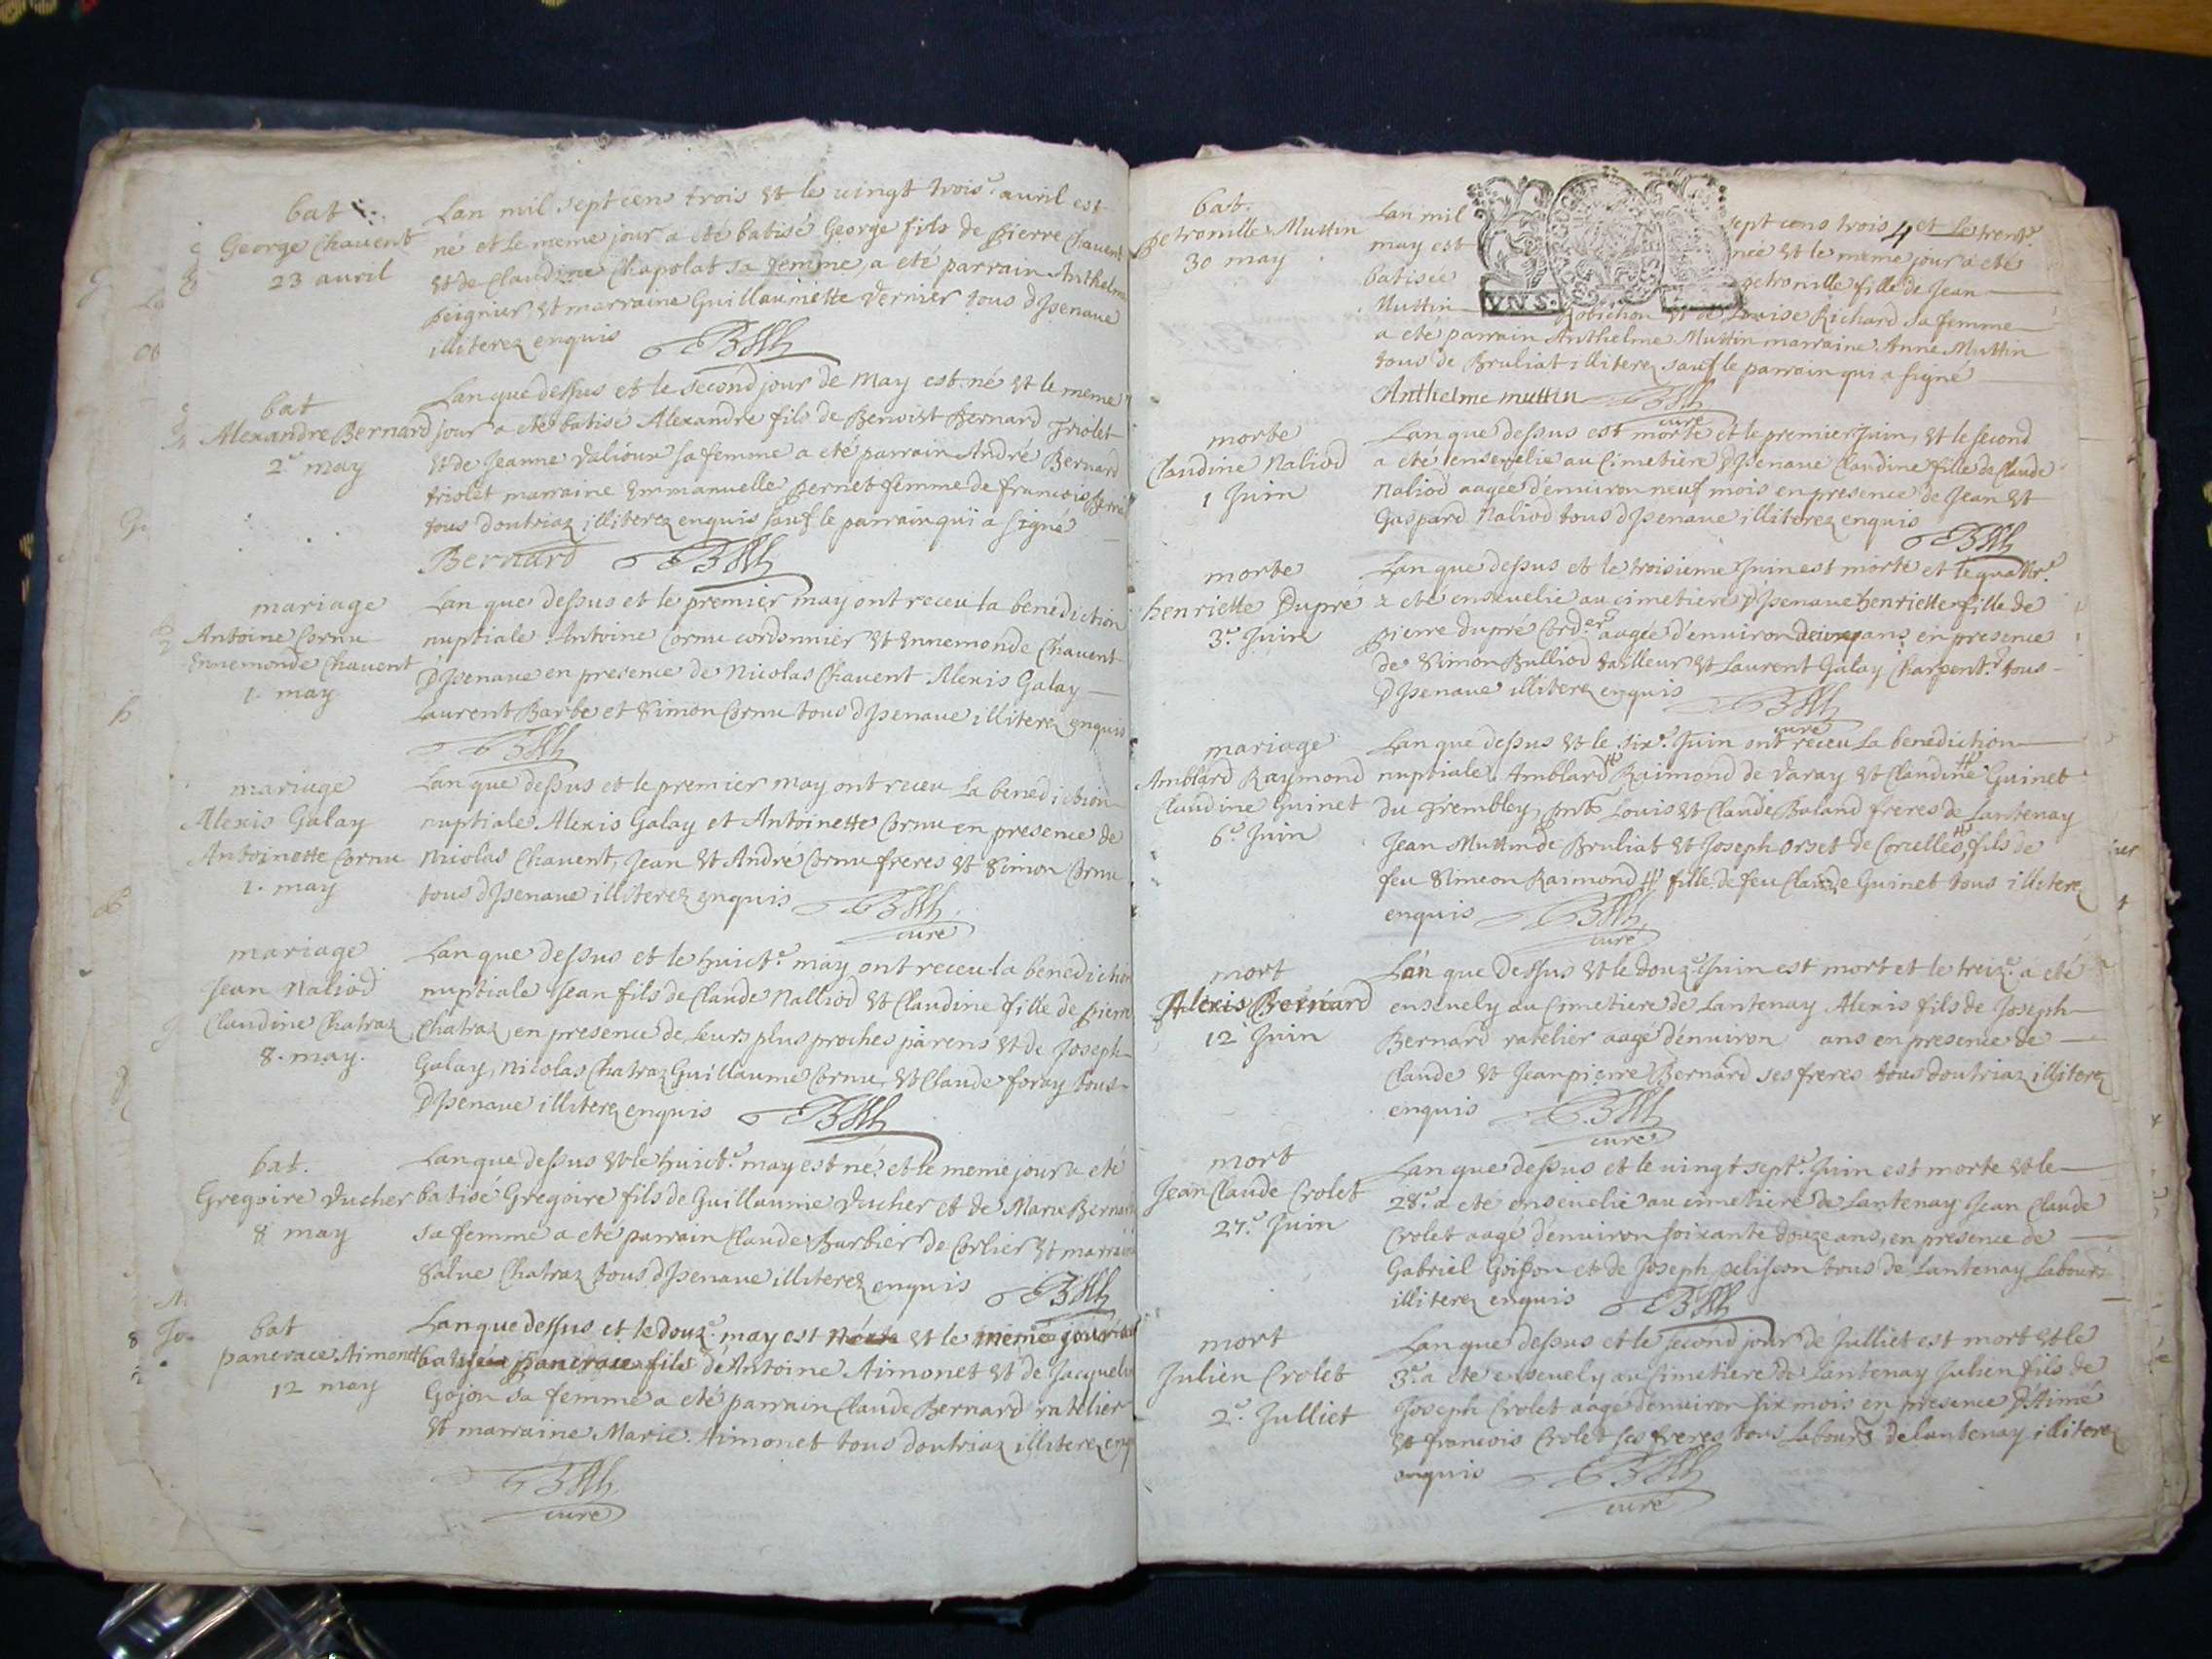 bat
George Chavent
23 avril
Lan mil sept cens trois et le vingt trois.e avril est
né et le meme jour a eté batisé George fils de pierre Chavent
et de Claudine Chapolat sa femme, a eté parrain Anthelme
peignier et marraine Guillaumette Vernier tous d'Jsenave
illiterez enquis
bat
Alexandre Bernard
2.e may
Lan que dessus et le second jour de May est né et le meme
jour a eté batisé Alexandre fils de Benoist Bernard triolet
et de Jeanne Valioux sa femme a eté parrain André Bernard
triolet marraine Emmanuelle pernet femme de francois
tous doutriaz illiterez enquis sauf le parrain qui a signé
Bernard
mariage
Antoine Cornu
Ennemonde Chavent
1. may
Lan que dessus et le premier may ont receu la benediction
nuptiale Antoine Cornu cordonnier et Ennemonde Chavent
D'Jsenave en presence de Nicolas Chavent Alexis Galay
Laurent Barbe et Simon Cornu tous d'Jsenave illiterez enquis
mariage
Alexis Galay
Antoinette Cornu
1. may
Lan que dessus et le premier may ont receu la benediction
nuptiale Alexis Galay et Antoinette Cornu en presence de
Nicolas Chavent, Jean et André Cornu freres et Simon Cornu
tous d'Jsenave illiterez enquis
curé
mariage
Jean Naliod
Claudine Chatraz
8. may.
Lan que dessus et le huict.e may ont receu la benediction
nuptiale Jean fils de Claude Nalliod et Claudine fille de pierre
Chatraz, en presence de leurs plus proches parens et de Joseph
Galay, Nicolas Chatraz Guillaume Cornu, et Claude foray tous
D'Jsenave illiterez enquis
bat.
Gregoire Vucher
8 may
Lan que dessus et le huict.e may est né et le meme jour a eté
batisé Gregoire fils de Guillaume Vucher et de Marie Bernard
sa femme a eté parrain Claude Barbier de Corlier et marraine
Salve Chatraz tous d'Jsenave illiterez enquis
bat
pancrace Aimonet
12 may
Lan que dessus et le douz.e may est né et le meme jour a eté
batisé pancrace fils de Antoine Aimonet et de Jacqueline
Gojon sa femme a eté parrain Claude Bernard ratelier
et marraine Marie Aimonet tous doutriaz illiterez enq
curé
bat.
petronille Muttin
30 may
Lan mil sept cens trois et le trent.e
may est née et le meme jour a eté
batisée petronille fille de Jean
Muttin Robichon et de Louise Richard sa femme
a eté parrain Anthelme Muttin marraine Anne Muttin
tous de Bruliat illiterez sauf le parrain qui a signé
Anthelme muttin
curé
morte
Claudine Naliod
1 Juin
Lan que dessus est morte et le premier Juin, et le second
a eté ensevelie au Cimetiere D'Jsenave Claudine fille de Claude
Naliod aagée d'environ neuf mois en presence de Jean et
Gaspard Naliod tous d'Jsenave illiterez enquis
morte
henriette Dupré
3.e Juin
Lan que dessus et le troisieme Juin est morte et le quattr.e
a eté ensevelie au cimetiere D'Jsenave henriette fille de
pierre dupré Cord.er aagée d'environ ans en presence
de Simon Bulliod tailleur et Laurent Galay Charpent.r tous
D'Jsenave illiterez enquis
curé
mariage
Amblard Raymond
Claudine Guinet
6.e Juin
Lan que dessus et le six.e Juin ont receu la benediction
nuptiale Amblard Raimond de Varay et Claudine Guinet
du Trembley, pnts Louis et Claude Baland freres de Lantenay
Jean Muttin de Bruliat et Joseph Orset de Corcelles, fils de
feu Simeon Raimond fille de feu Claude Guinet tous illiterez
enquis
curé
mort
Alexis Bernard
12 Juin
Lan que dessus et le douz.e Juin est mort et le treiz.e a eté
ensevely au Cimetiere de Lantenay Alexis fils de Joseph
Bernard ratelier aagé d'environ ans en presence de
Claude et Jeanpierre Bernard ses freres tous doutriaz illiterez
enquis
curé
mort
Jean Claude Crolet
27.e Juin
Lan que dessus et le vingt sept.e Juin est morte et le
28.e a eté ensevelie au cimetiere de Lantenay Jean Claude
Crolet aagé d'environ soixante douze ans, en presence de
Gabriel Goisson et de Joseph pelisson tous de Lantenay Labours
illiterez enquis
mort
Julien Crolet
2.e Julliet
Lan que dessus et le second jour de Julliet est mort et le
3.e a eté ensevely au Cimetiere de Lantenay Julien fils de
Joseph Crolet aagé d'environ six mois en presence d'Aimé
et francois Crolet ses freres tous Labours de Lantenay illiterez
enquis
curé